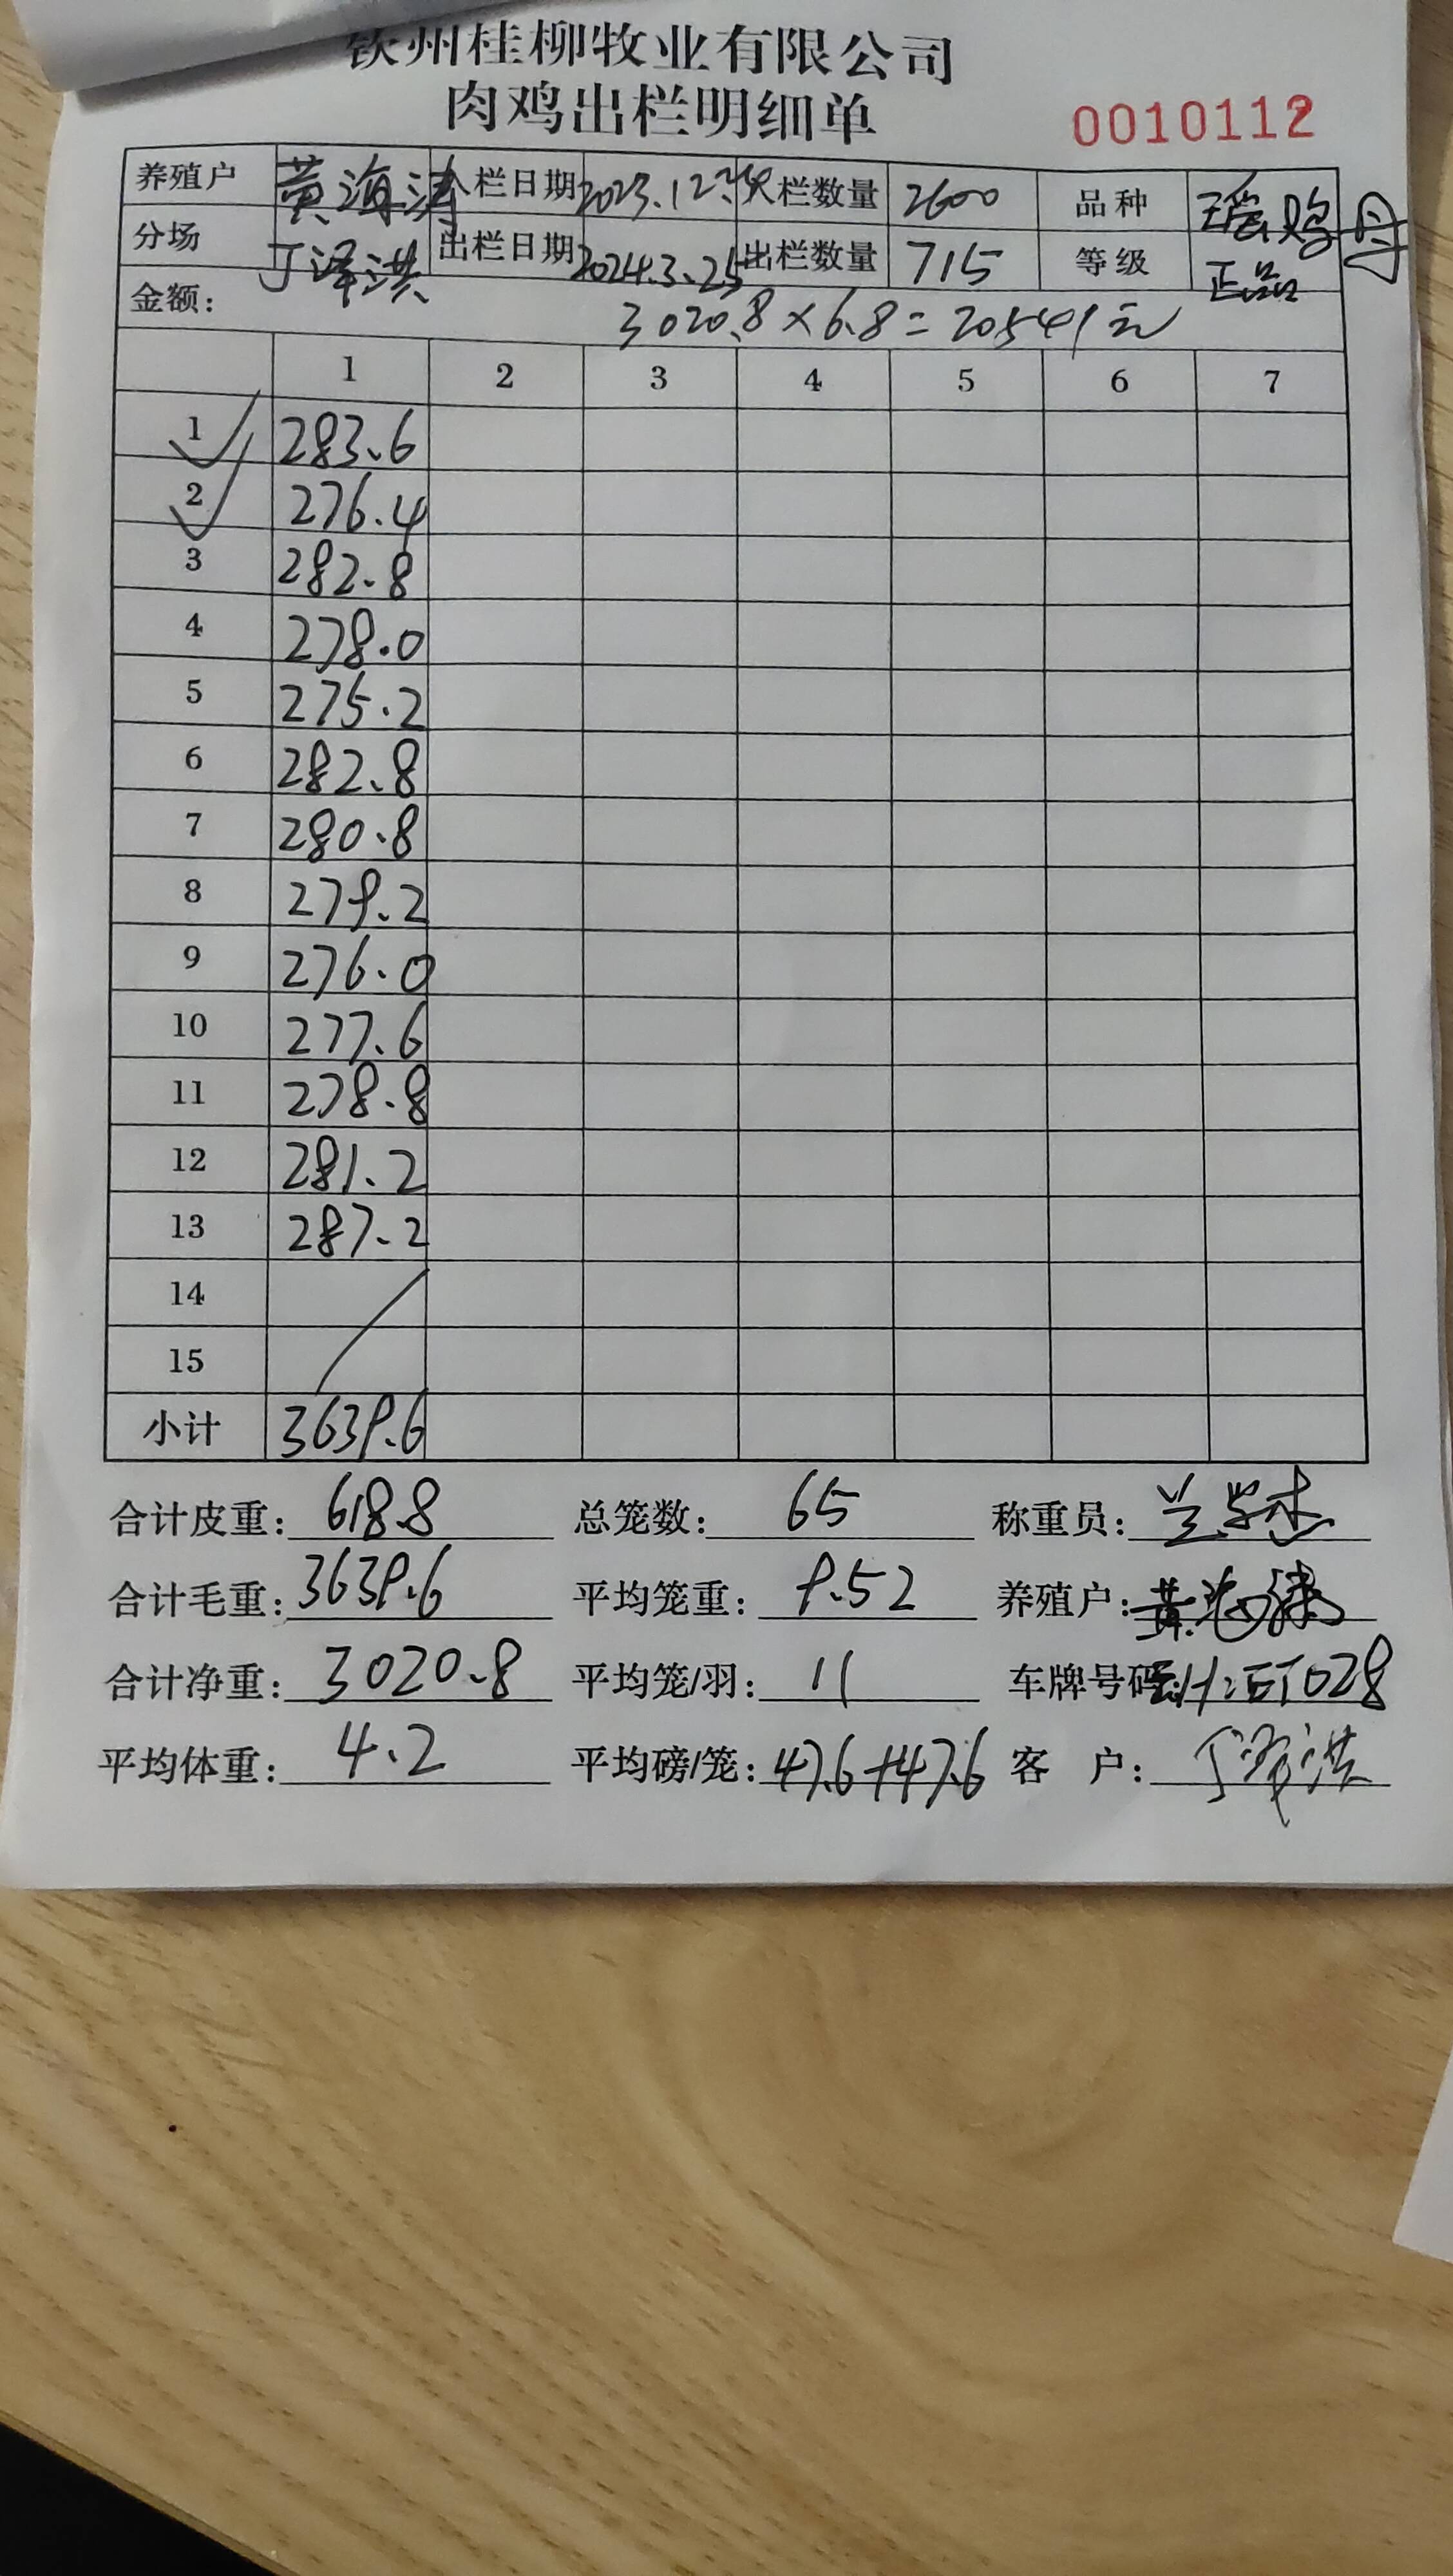 钦州桂柳牧业有限公司
肉鸡出栏明细单
0010112
养殖户 黄海涛 入栏日期 2023.12 入栏数量 2600 品种 瑶鸡母
分场 丁泽洪 出栏日期 2024.3.25 出栏数量 715 等级 正品
金额: 3020.8×6.8=20541元
1 2 3 4 5 6 7
1 283.6
2 276.4
3 282.8
4 278.0
5 275.2
6 282.8
7 280.8
8 279.2
9 276.0
10 277.6
11 278.8
12 281.2
13 287.2
14
15
小计 3639.6
合计皮重: 618.8 总笼数: 65 称重员: 兰
合计毛重: 3639.6 平均笼重: 9.52 养殖户: 黄海涛
合计净重: 3020.8 平均笼/羽: 11 车牌号码:
平均体重: 4.2 平均磅/笼: 47.6+47.6 客 户: 丁泽洪